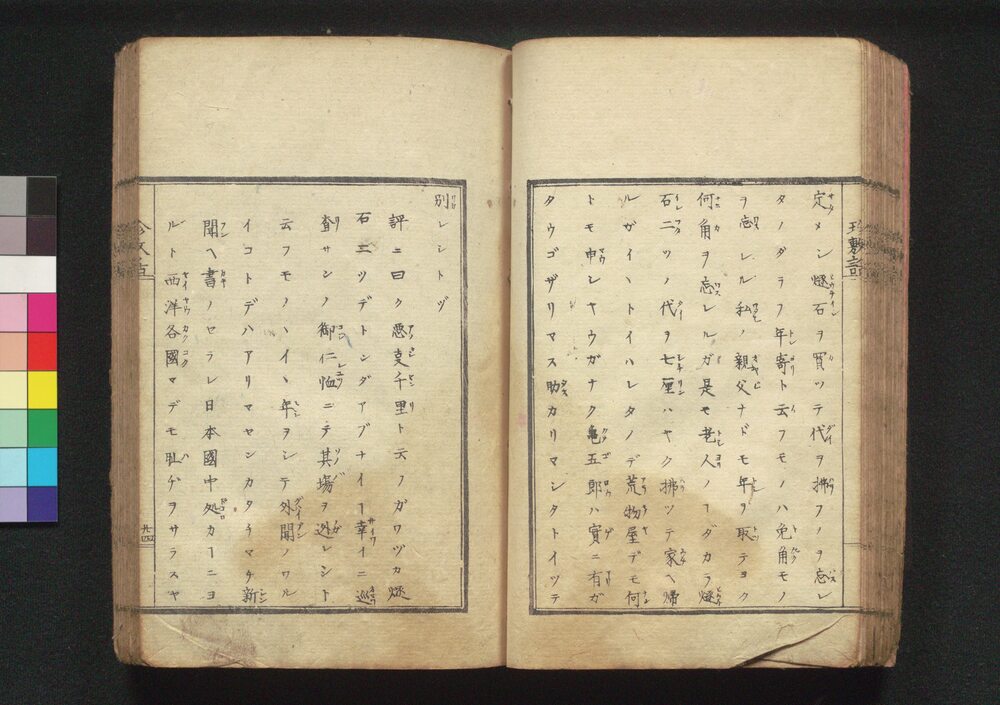 定メシ燧石ヲ買ツテ代ヲ拂フノヲ忘レ
タノダラフ年寄ト云フモノハ兎角モノ
ヲ忘レル私ノ親父ナドモ年ヲ取テヨク
何角ヲ忘レルガ是モ老人ノヿダカラ燧
石二ツノ代ヲ七厘ハヤク拂ツテ家ヘ帰
ルガイヽトイハレタノデ荒物屋デモ何
トモ申シヤウガナク亀五郎ハ實ニ有ガ
タウゴザリマス助カリマシタトイツテ
別レシトゾ
評ニ曰ク悪事千里ト云ノガワヅカ燧
石三ツデトンダアブナイヿ幸イニ巡
査サンノ御仁恤ニテ其場ヲ逃レシト
云フモノヽイヽ年ヲシテ外聞ノワル
イコトデハアリマセンカタチマチ新
聞ヘ書ノセラレ日本國中処カーニヨ
ルト西洋各國マデモ恥ヂヲサラスヤ
珍敷話
廿四